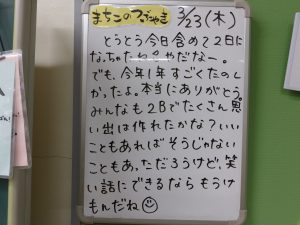 まちこのつぶやき 3/23(木)
とうとう今日含めて2日に
なっちゃたね。やだなー。
でも、今年1年すごくたのし
かったよ。本当にありがとう。
みんなも2Bでたくさん思
い出は作れたかな?いい
こともあればそうじゃない
こともあっただろうけど、笑
い話にできるならもうけ
もんだね